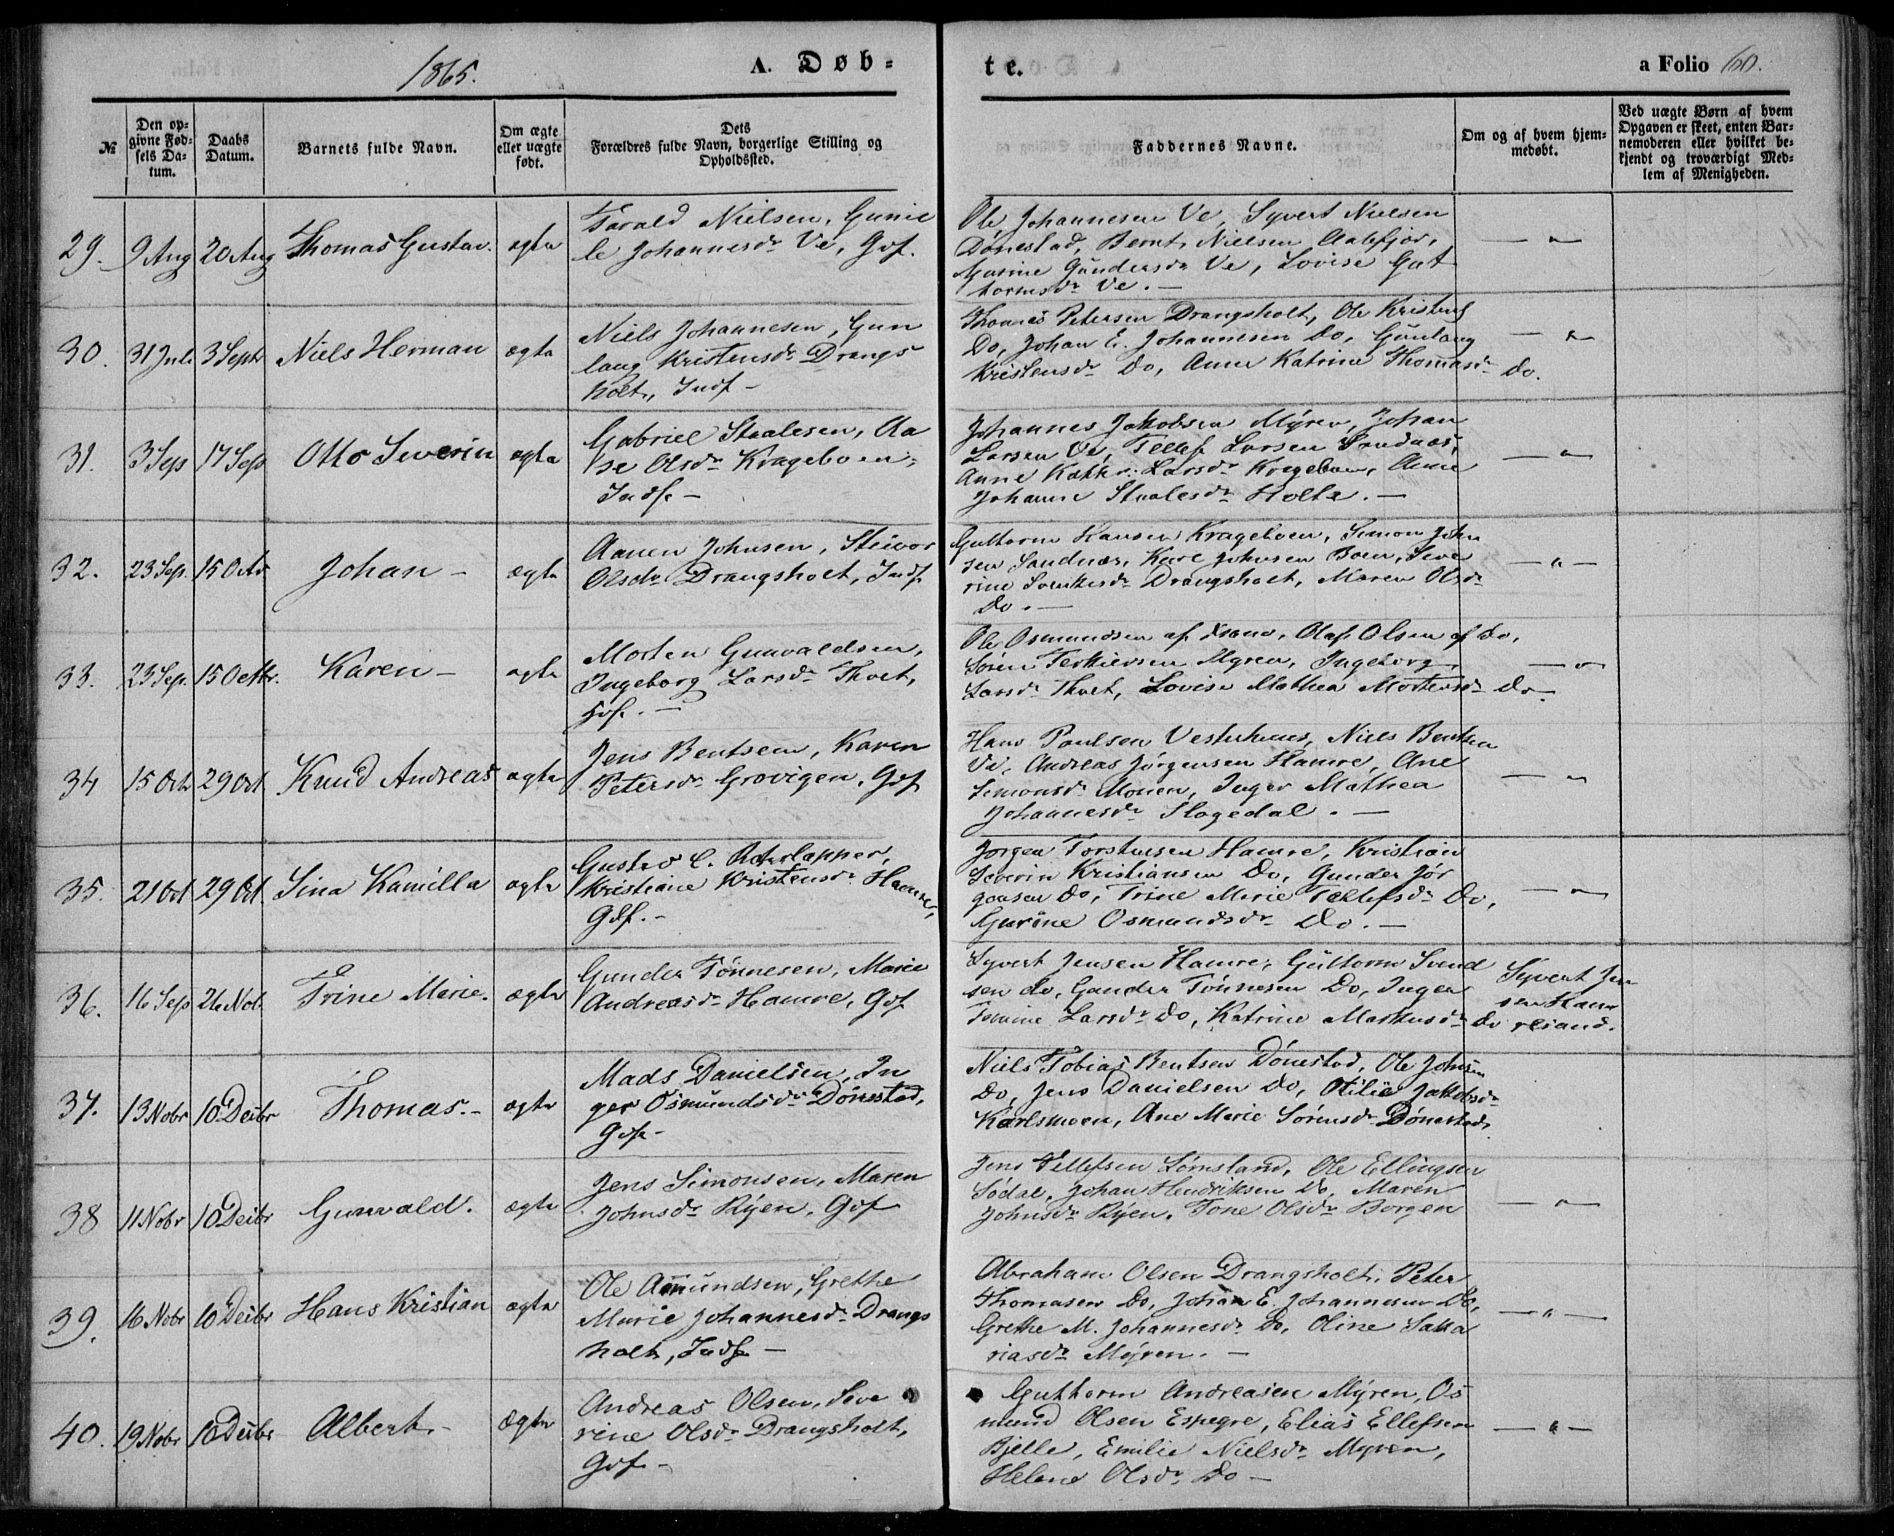 1865.
A. Døb-
te.
a Folio 60.
№
Den op-
givne Fød-
sels Da-
tum.
Daabs
Datum.
Barnets fulde Navn.
Om ægte
eller uægte
født.
Dets
Forældres fulde Navn, borgerlige Stilling og
Opholdssted.
Faddernes Navne.
Om og af hvem hjem-
medøbt.
Ved uægte Børn af hvem
Opgaven er skeet, enten Bar-
nemoderen eller hvilket be-
kjendt og troværdigt Med-
lem af Menigheden.
29. 9 Aug 20 Aug Thomas Gustav. ægte
Tarald Nielsen, Gunil
le Johannesdr Ve, Gdf.
Ole Johannesen Ve, Syvert Nielsen
Dønestad, Bernt Nielsen Aalefjær,
Gundersdr Ve, Lovise Gut
tormsdr Ve. —
— " —
30. 31 Juli 3 Sept Niels Herman ægte
Niels Johannesen, Gun
laug Kristensdr Drangs
holt, Indf —
Thomas Petersen Drangsholt, Ole Kristens
Do, Johan E. Johannesen Do, Gunlaug
Kristensdr Do, Anne Katrine Thomasdr Do.
— " —
31. 3 Sep 17 Sep Otto Severin ægte
Gabriel Staalesen, Aa
se Olsdr Krageboen,
Indf. —
Johannes Jakobsen Myren, Johan
Larsen Ve, Tellef Larsen Sandnæs,
Anne Kathr. Larsdr Krageboen, Anne
Johanne Staalesdr Holte. —
— " —
32. 23 Sep. 15 Octr Johan — ægte
Aanen Johnsen, Steinvor
Olsdr Drangsholt, Indf
Guttorm Hansen Krageboen, Simon John
sen Sandnæs, Karl Johnsen Boen, Seve
rine Svenkesdr Drangsholt, Maren Olsdr
Do. —
— " —
33. 23 Sep. 15 Octbr. Karen — ægte
Morten Gunvaldsen,
Ingeborg Larsdr Thvet,
Gdf. —
Ole Osmundsen af Olaf Olsen af do,
Søren Terkielsen Myren, Ingeborg
Larsdr Thvet, Lovise Mathea Mortensdr Do
— " —
34 15 Oct 29 Oct. Knud Andreas ægte
Jens Bentsen, Karen
Petersdr Grovigen, Gdf
Hans Poulsen Vesterhuus, Niels Bentsen
Ve, Andreas Jørgensen Hamre, Ane
Simonsdr Monen, Inger Mathea
Johannesdr Stagedal. —
— " —
35. 21 Oct 29 Oct. Sina Kamilla ægte
Gustav C.
Kristiane Kristensdr Hamre,
Gdf. —
Jørgen Torstensen Hamre, Kristian
Severin Kristiansen Do, Gunder Jør
gensen Do, Trine Marie Tellefsdr Do,
Gurine Osmundsdr Do. —
— " —
36. 16 Sep 26 Nob. Trine Marie. ægte
Gunder Tønnesen, Marie
Andreasdr Hamre, Gdf
Syvert Jensen Hamre, Guttorm Svend
sen do, Gunder Tønnesen Do, Inger
Larsdr Do, Katrine Markusdr Do
Syvert Jen
sen Ham
resand.
37. 13 Nobr 10 Decbr Thomas. — ægte
Mads Danielsen, In
ger Osmundsdr Dønestad,
Gdf —
Niels Tobias Bentsen Dønestad, Ole Johnsen
Do, Jens Danielsen Do, Otilie Jakobsdr
Karlsmoen, Ane Marie Sørensdr Dønestad.
38 11 Nobr 10 Decbr Gunvald. ægte
Jens Simonsen, Maren
Johnsdr Ryen, Gdf
Jens Tellefsen Lømsland, Ole Ellingsen
Sødal, Johan Hendriksen Do, Maren
Johnsdr Ryen, Tone Olsdr Borgen
— " —
39. 16 Nobr 10 Decbr Hans Kristian ægte
Ole Amundsen, Grethe
Marie Johannesdr Drangs
holt, Indf —
Abraham Olsen Drangsholt, Peter
Thomasen Do, Johan E. Johannesen Do,
Grethe M. Johannesdr Do, Oline Saka
riasdr Myren. —
— " —
40. 19 Nobr 10 Decbr Albert. — Ægte
Andreas Olsen, Seve
rine Olsdr Drangsholt,
Gdf. —
Guttorm Andreasen Myren, Os
mund Olsen Espegre, Elias Ellefsen
Bjelle, Emilie Nielsdr Myren,
Helene Olsdr Do —
— " —